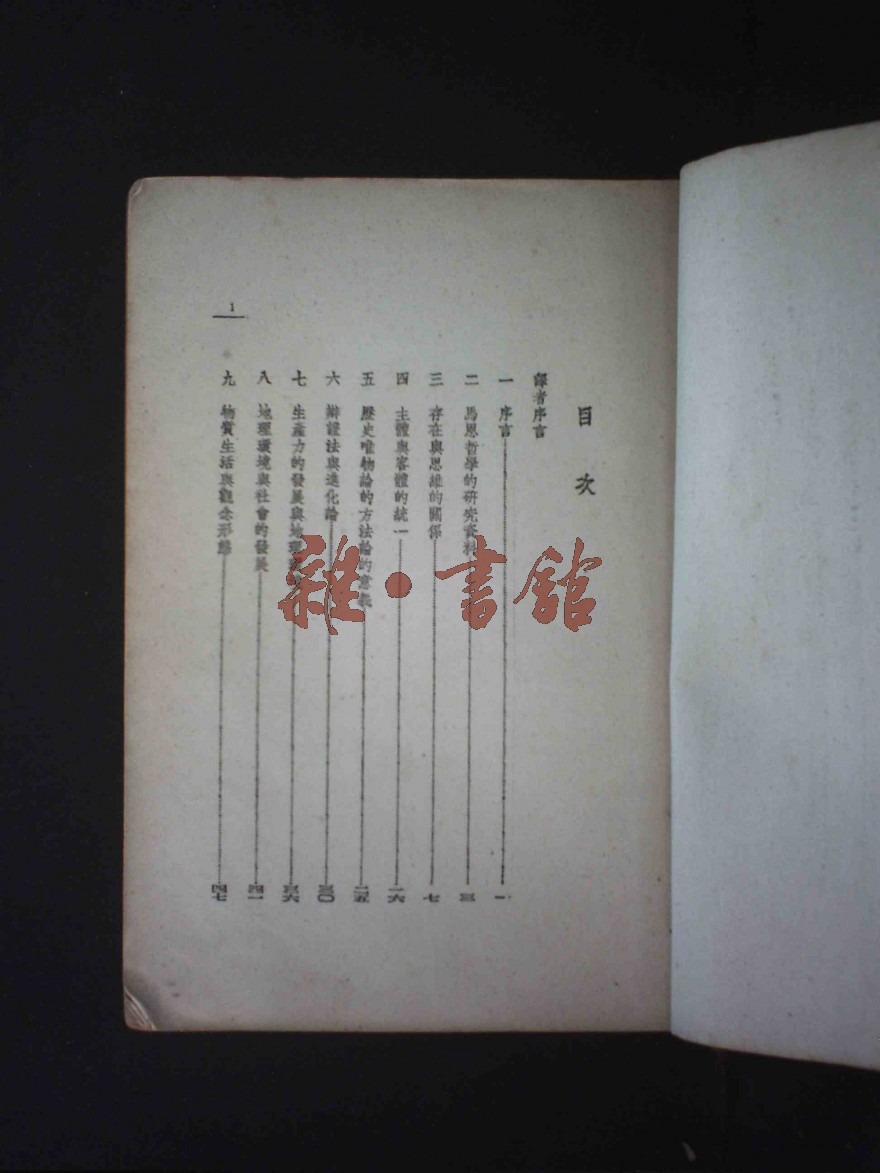 目次
譯者序言
一 序言 一
二 馬恩哲學的研究資料 三
三 存在與思維的關係 七
四 主體與客體的統一 一六
五 歷史唯物論的方法論的意義 二五
六 辯證法與進化論 三〇
七 生產力的發展與地理 三六
八 地理環境與社會的發展 四一
九 物質生活與觀念形態 四七
1
雜·書館